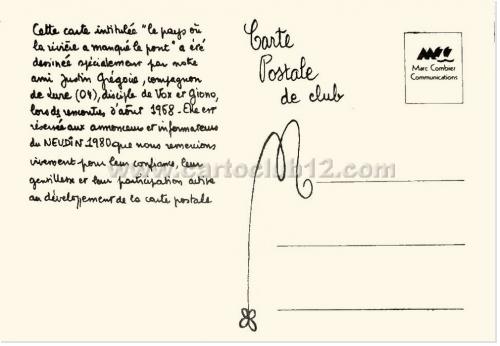 Cette carte intitulée "le pays où
la rivière a manqué le pont" a été
dessinée spécialement par notre
ami Justin Grégoire, compagnon
de Lure (04), disciple de Vox et Giono,
lors de remontées d'août 1968 - Elle est
réservée aux annonceurs et informateurs
du NEUDIN 1980 que nous remercions
vivement pour leur confiance, leur
gentillesse et leur participation active
au développement de la carte postale
Carte
Postale
de club
M
MCC
Marc Combier
Communications
www.cartoclub12.com